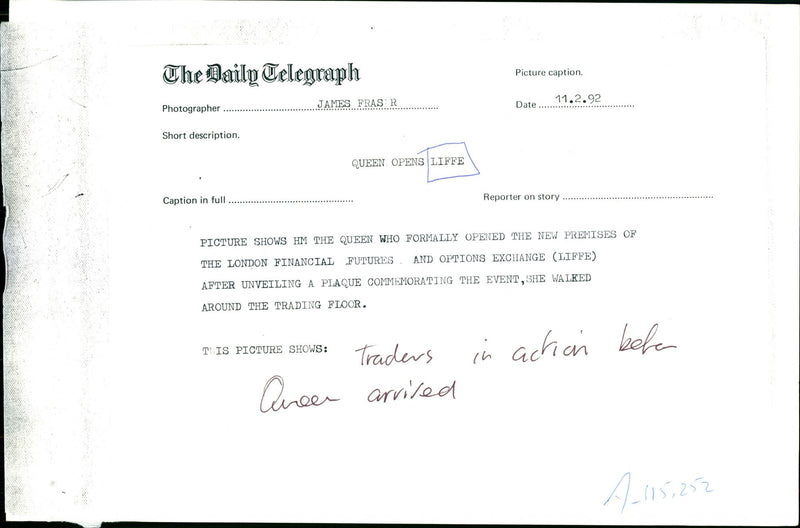 The Daily Telegraph
Picture caption.
Photographer JAMES FRAS R
Date 11.2.92
Short description.
QUEEN OPENS LIFFE
Caption in full
Reporter on story
PICTURE SHOWS HM THE QUEEN WHO FORMALLY OPENED THE NEW PREMISES OF
THE LONDON FINANCIAL .FUTURES . AND OPTIONS EXCHANGE (LIFFE)
AFTER UNVEILING A PLAQUE COMMEMORATING THE EVENT,SHE WALKED
AROUND THE TRADING FLOOR.
THIS PICTURE SHOWS: Traders in action before
Queen arrived
A-115,252